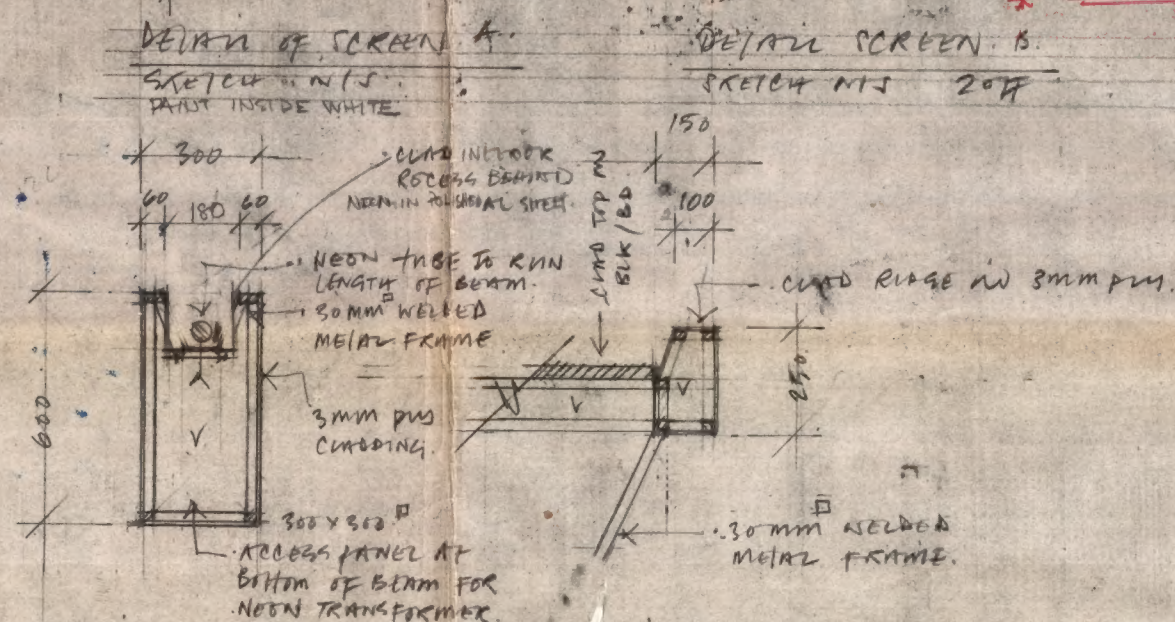 DETAIL OF SCREEN A.
SKETCH N/S.
PAINT INSIDE WHITE
300
60 180 60
600
CLAD INDOOR
RECESS BEHIND
NEON IN POLISHED AL SHEET.
NEON TUBE TO RUN
LENGTH OF BEAM.
30MM □ WELDED
METAL FRAME
3MM PLY
CLADDING.
300 X 300 □
ACCESS PANEL AT
BOTTOM OF BEAM FOR
NEON TRANSFORMER.
DETAIL SCREEN B.
SKETCH N/S 2 OFF
150
100
CLAD TOP IN
BLK/BD
CLAD RIDGE IN 3MM PLY.
250
30MM □ WELDED
METAL FRAME.